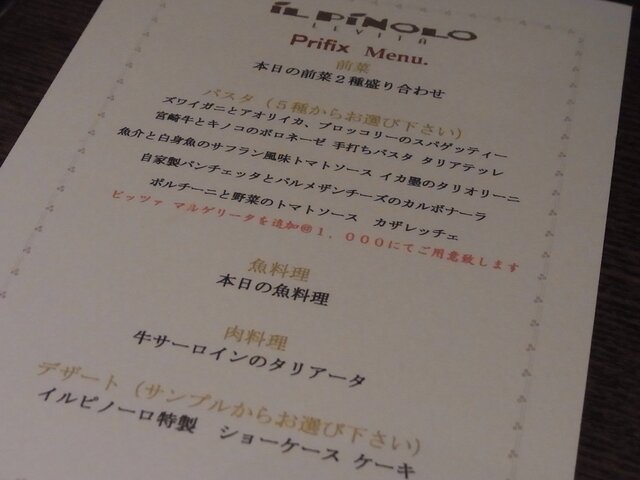 iL PiNOLO
LEVITA
Prifix Menu.
前菜
本日の前菜２種盛り合わせ
パスタ（５種からお選び下さい）
ズワイガニとアオリイカ、ブロッコリーのスパゲッティー
宮崎牛とキノコのボロネーゼ 手打ちパスタ タリアテッレ
魚介と白身魚のサフラン風味トマトソース イカ墨のタリオリーニ
自家製パンチェッタとパルメザンチーズのカルボナーラ
ポルチーニと野菜のトマトソース カザレッチェ
ピッツァ マルゲリータを追加@１，０００にてご用意致します
魚料理
本日の魚料理
肉料理
牛サーロインのタリアータ
デザート（サンプルからお選び下さい）
イルピノーロ特製 ショーケース ケーキ